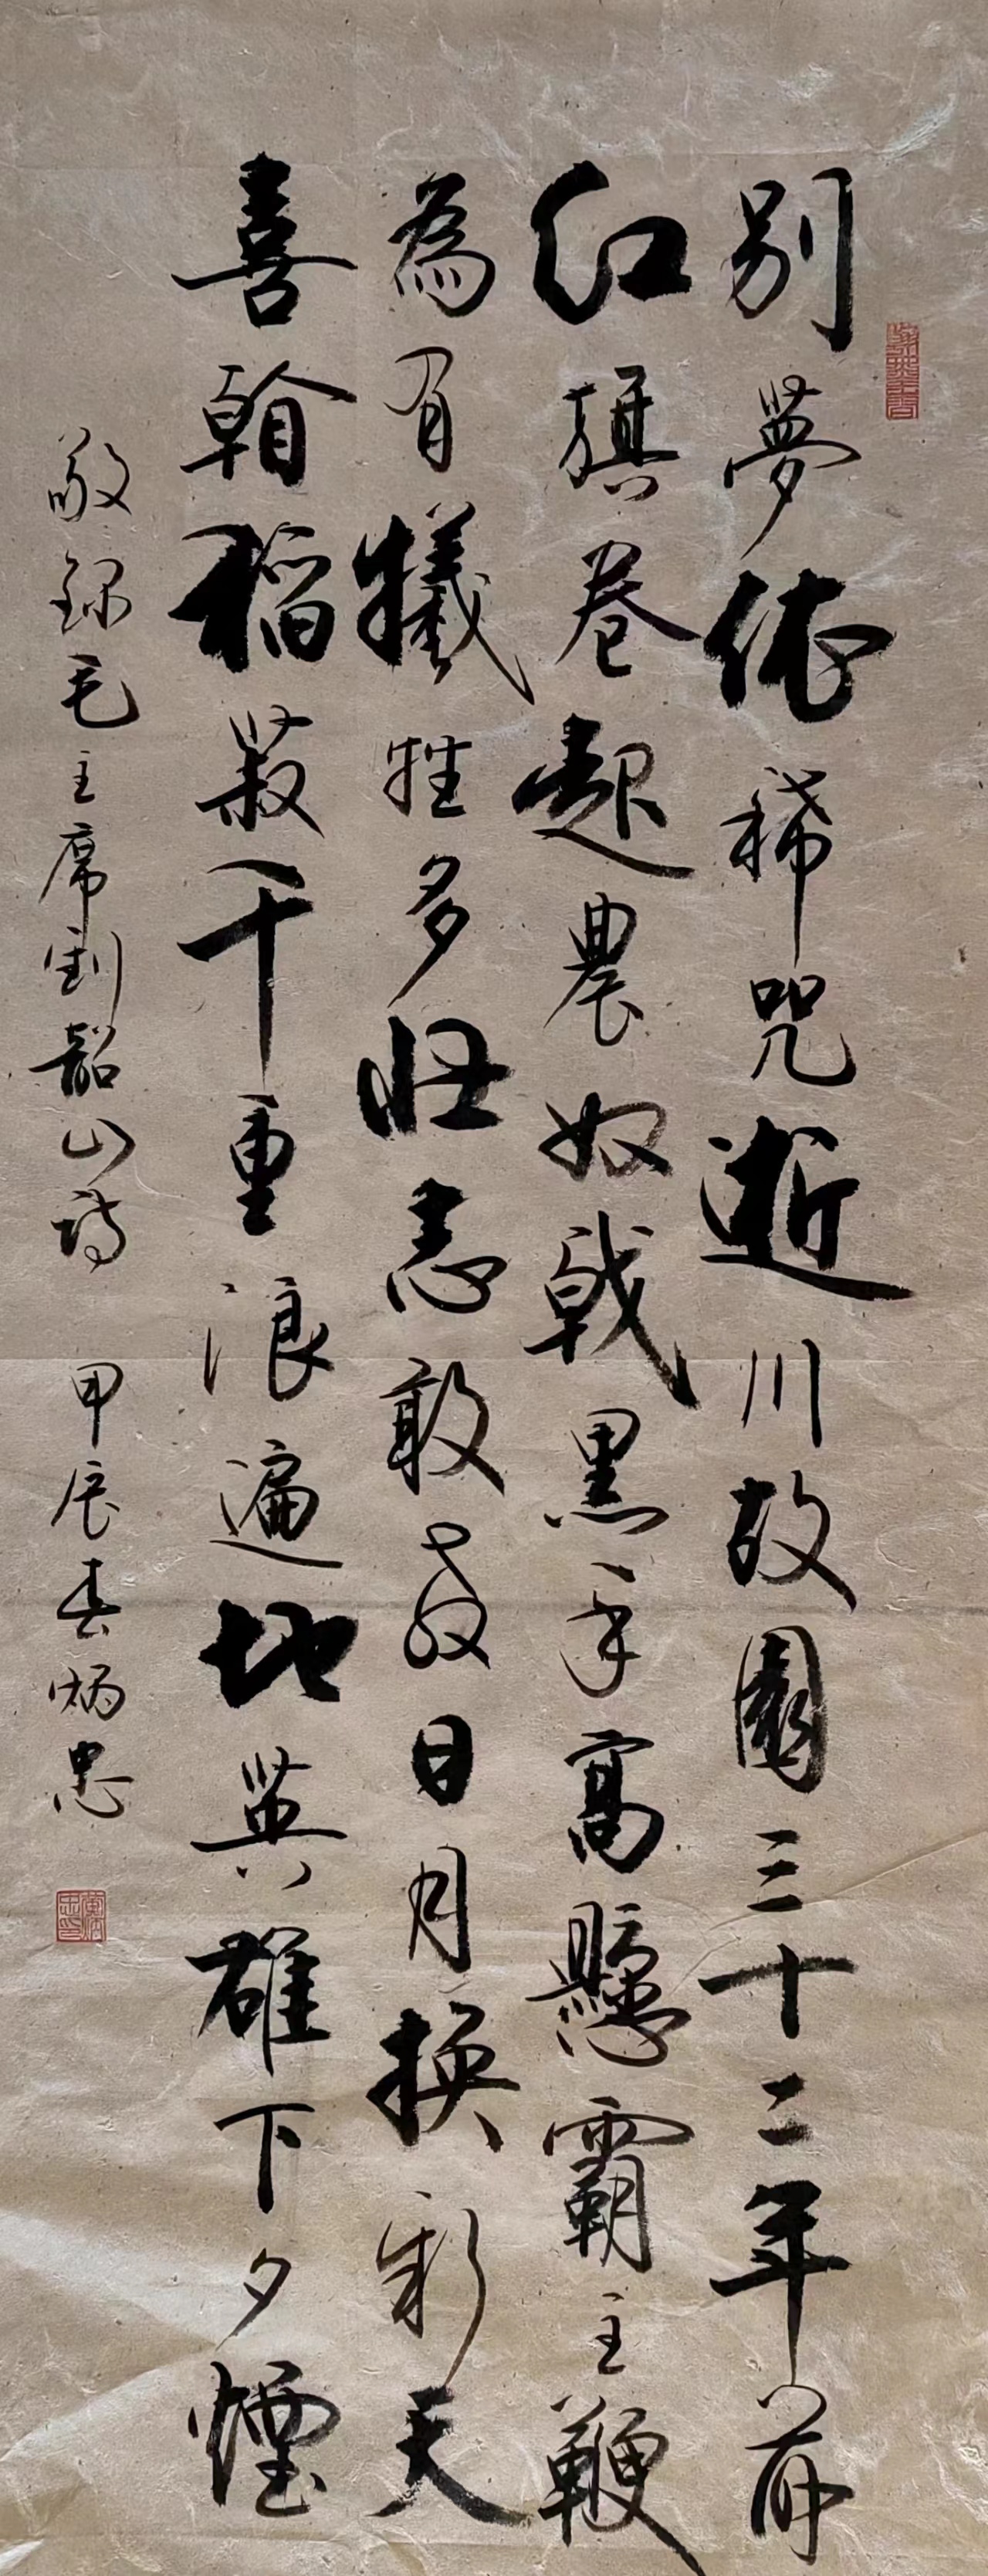 別夢依稀咒逝川故園三十二年前
紅旗卷起農奴戟黑手高懸霸主鞭
為有犧牲多壯志敢教日月換新天
喜看稻菽千重浪遍地英雄下夕煙
敬録毛主席到韶山詩 甲辰春炳忠